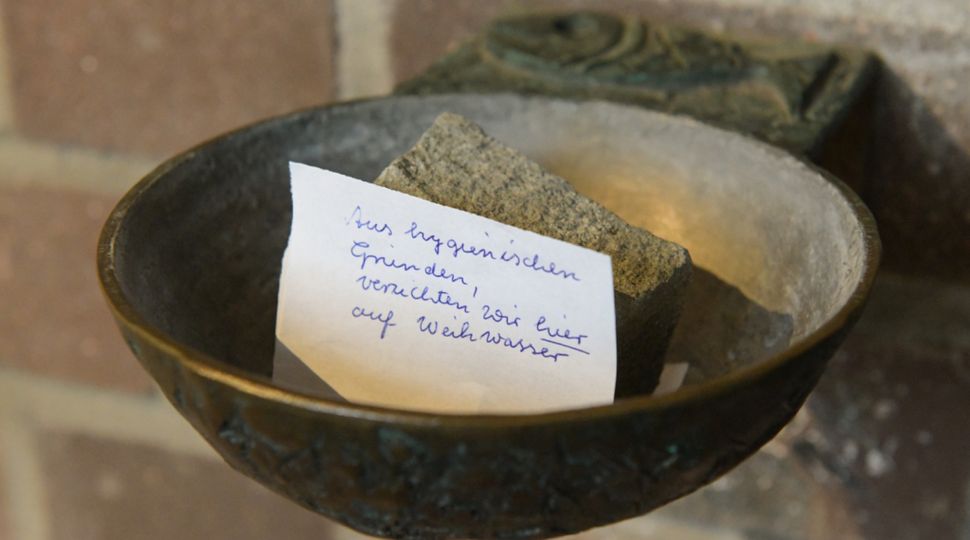 Aus hygienischen
Gründen,
verzichten wir hier
auf Weihwasser